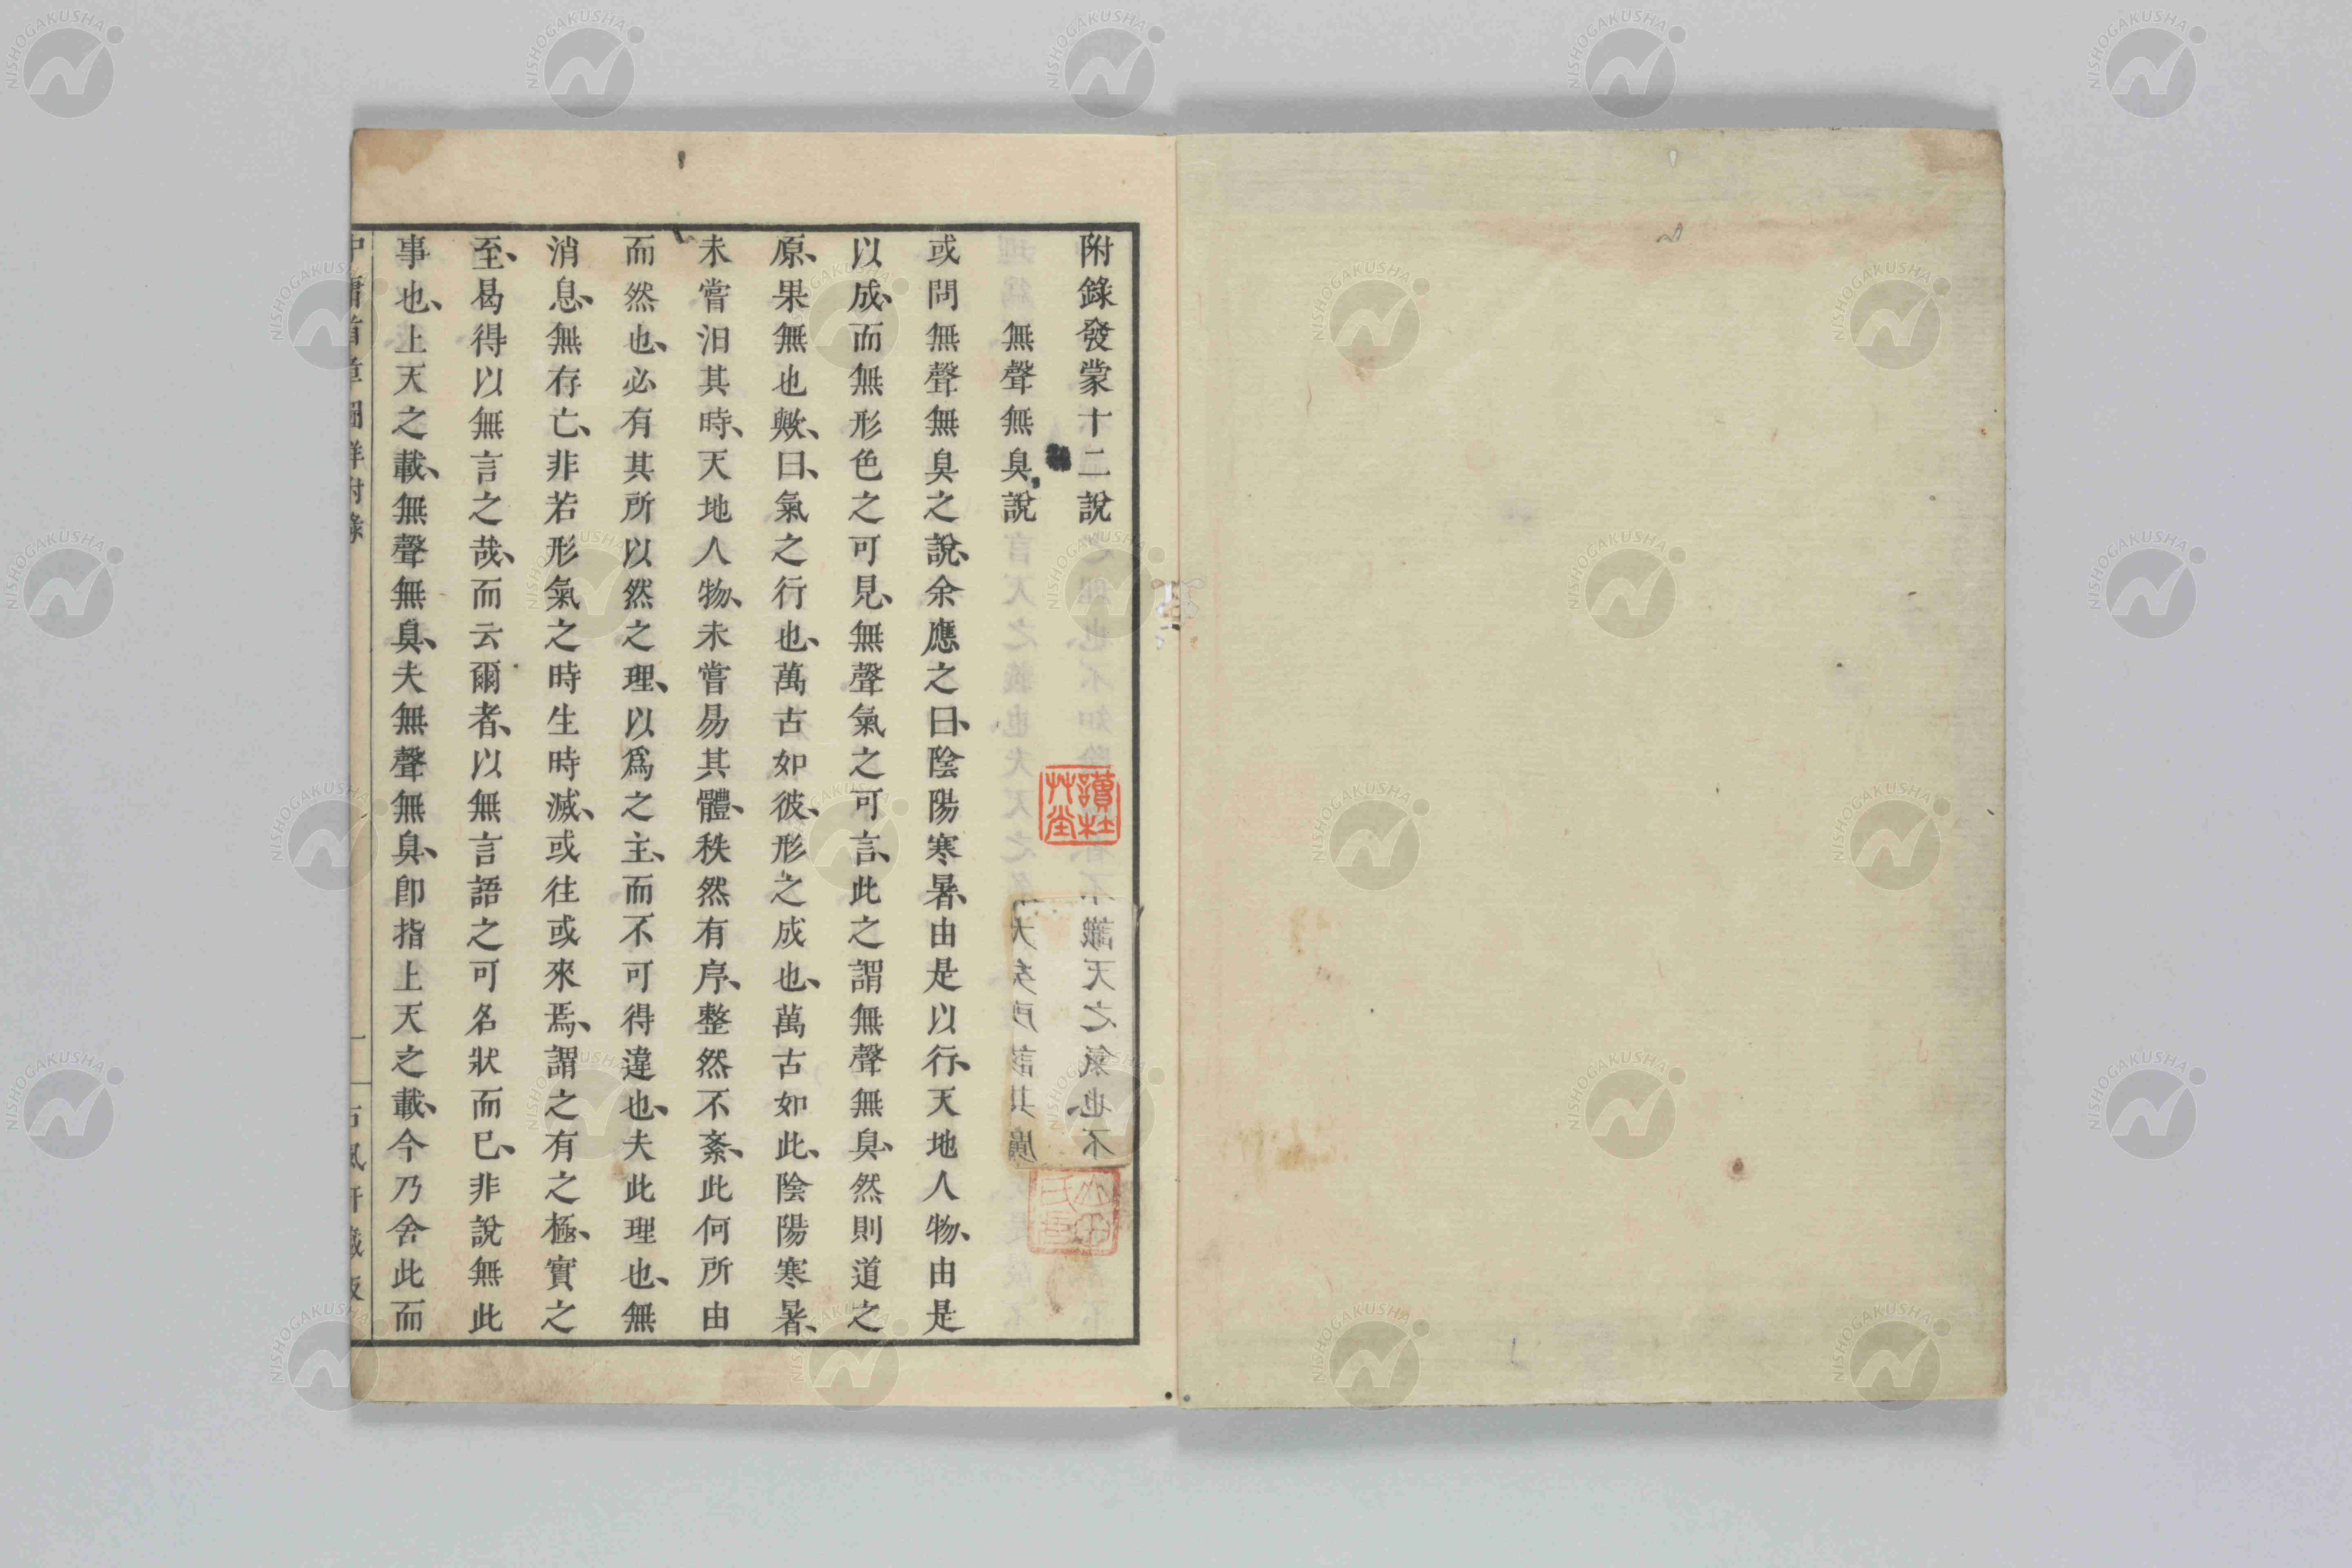 附錄發蒙十二說
無聲無臭說
或問無聲無臭之說、余應之曰、陰陽寒暑、由是以行、天地人物、由是
以成、而無形色之可見、無聲氣之可言、此之謂無聲無臭、然則道之
原、果無也歟、曰、氣之行也、萬古如彼、形之成也、萬古如此、陰陽寒暑、
未嘗汨其時、天地人物、未嘗易其體、秩然有序、整然不紊、此何所由
而然也、必有其所以然之理、以爲之主、而不可得違也、夫此理也、無
消息、無存亡、非若形氣之時生時滅、或往或來焉、謂之有之極、實之
至、曷得以無言之哉、而云爾者、以無言語之可名狀而已、非說無此
事也、上天之載、無聲無臭、夫無聲無臭、卽指上天之載、今乃舍此而
中庸首章圖詳附錄
一
古風軒藏版
讀杜艸堂
NISHOGAKUSHA